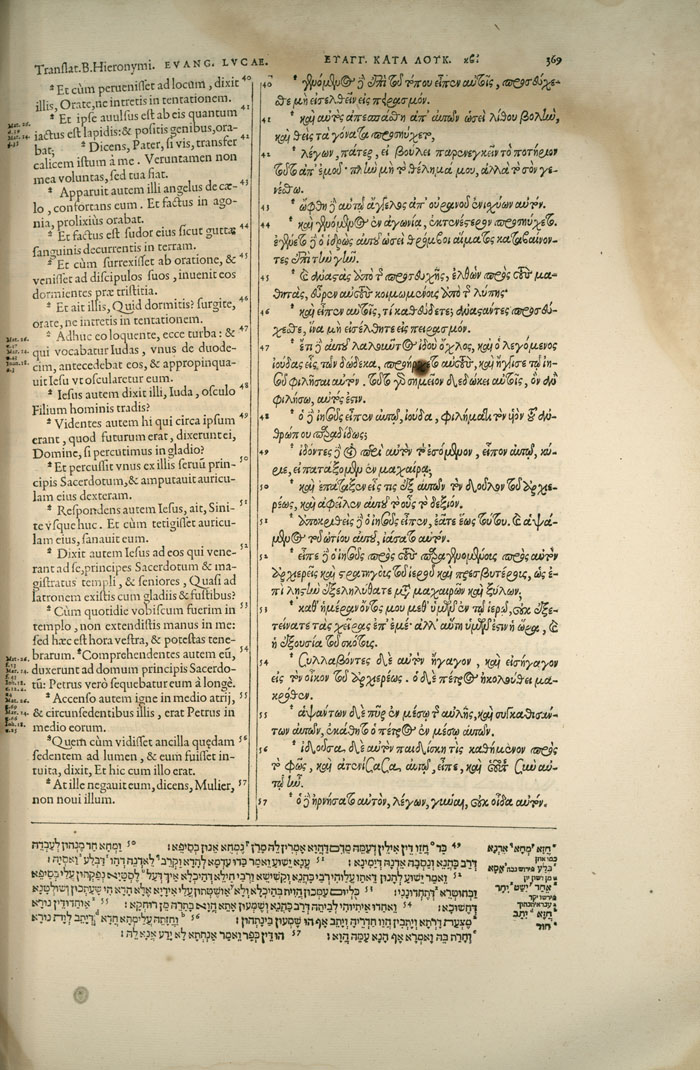 Translat.B.Hieronymi. EVANG. LVCAE.
* Et cùm peruenisset ad locum, dixit 40
illis, Orate, ne intretis in tentationem.
* Et ipse auulsus est ab eis quantum 41
iactus est lapidis: & positis genibus, ora-
bat; * Dicens, Pater, si vis, transfer 42
calicem istum à me. Veruntamen non
mea voluntas, sed tua fiat.
* Apparuit autem illi angelus de cæ- 43
lo, confortans eum. Et factus in ago-
nia, prolixiùs orabat.
* Et factus est sudor eius sicut guttæ 44
sanguinis decurrentis in terram.
* Et cùm surrexisset ab oratione, & 45
venisset ad discipulos suos, inuenit eos
dormientes præ tristitia.
* Et ait illis, Quid dormitis? surgite, 46
orate, ne intretis in tentationem.
* Adhuc eo loquente, ecce turba: & 47
qui vocabatur Iudas, vnus de duode-
cim, antecedebat eos, & appropinqua-
uit Iesu vt oscularetur eum.
* Iesus autem dixit illi, Iuda, osculo 48
Filium hominis tradis?
* Videntes autem hi qui circa ipsum 49
erant, quod futurum erat, dixerunt ei,
Domine, si percutimus in gladio?
* Et percussit vnus ex illis seruũ prin- 50
cipis Sacerdotum, & amputauit auricu-
lam eius dexteram.
* Respondens autem Iesus, ait, Sini- 51
te vsque huc. Et cùm tetigisset auricu-
lam eius, sanauit eum.
* Dixit autem Iesus ad eos qui vene- 52
rant ad se, principes Sacerdotum & ma-
gistratus templi, & seniores, Quasi ad
latronem existis cum gladiis & fustibus?
* Cùm quotidie vobiscum fuerim in 53
templo, non extendistis manus in me:
sed hæc est hora vestra, & potestas tene-
brarum. * Comprehendentes autem eũ, 54
duxerunt ad domum principis Sacerdo-
tũ: Petrus verò sequebatur eum à longè.
* Accenso autem igne in medio atrij, 55
& circunsedentibus illis, erat Petrus in
medio eorum.
* Quem cùm vidisset ancilla quędam 56
sedentem ad lumen, & eum fuisset in-
tuita, dixit, Et hic cum illo erat.
* At ille negauit eum, dicens, Mulier, 57
non noui illum.
ΕΥΑΓΓ. ΚΑΤΑ ΛΟΥΚ. κβ΄. 369
40 * γενόμενος δὲ ἐπὶ τοῦ τόπου εἶπεν αὐτοῖς, προσεύχε-
σθε μὴ εἰσελθεῖν εἰς πειρασμόν.
41 * καὶ αὐτὸς ἀπεσπάσθη ἀπ' αὐτῶν ὡσεὶ λίθου βολὴν,
καὶ θεὶς τὰ γόνατα προσηύχετο,
42 * λέγων, πάτερ, εἰ βούλει παρενεγκεῖν τὸ ποτήριον
τοῦτο ἀπ' ἐμοῦ· πλὴν μὴ τὸ θέλημά μου, ἀλλὰ τὸ σὸν γε-
νέσθω.
43 * ὤφθη δὲ αὐτῷ ἄγγελος ἀπ' οὐρανοῦ ἐνισχύων αὐτόν.
44 * καὶ γενόμενος ἐν ἀγωνίᾳ, ἐκτενέστερον προσηύχετο.
ἐγένετο δὲ ὁ ἱδρὼς αὐτοῦ ὡσεὶ θρόμβοι αἵματος καταβαίνον-
τες ἐπὶ τὴν γῆν.
45 * καὶ ἀναστὰς ἀπὸ τῆς προσευχῆς, ἐλθὼν πρὸς τοὺς μα-
θητὰς, εὗρεν αὐτοὺς κοιμωμένους ἀπὸ τῆς λύπης·
46 * καὶ εἶπεν αὐτοῖς, τί καθεύδετε; ἀναστάντες προσεύ-
χεσθε, ἵνα μὴ εἰσέλθητε εἰς πειρασμόν.
47 * ἔτι δὲ αὐτοῦ λαλοῦντος ἰδοὺ ὄχλος, καὶ ὁ λεγόμενος
ἰούδας εἷς τῶν δώδεκα, προήρχετο αὐτοὺς, καὶ ἤγγισε τῷ ἰη-
σοῦ φιλῆσαι αὐτόν. τοῦτο γὰρ σημεῖον δεδώκει αὐτοῖς, ὃν ἂν
φιλήσω, αὐτός ἐστιν.
48 * ὁ δὲ ἰησοῦς εἶπεν αὐτῷ, ἰούδα, φιλήματι τὸν υἱὸν τοῦ ἀν-
θρώπου παραδίδως;
49 * ἰδόντες δὲ οἱ περὶ αὐτὸν τὸ ἐσόμενον, εἶπον αὐτῷ, κύ-
ριε, εἰ πατάξομεν ἐν μαχαίρᾳ;
50 * καὶ ἐπάταξεν εἷς τις ἐξ αὐτῶν τὸν δοῦλον τοῦ ἀρχιε-
ρέως, καὶ ἀφεῖλεν αὐτοῦ τὸ οὖς τὸ δεξιόν.
51 * ἀποκριθεὶς δὲ ὁ ἰησοῦς εἶπεν, ἐᾶτε ἕως τούτου. καὶ ἁψά-
μενος τοῦ ὠτίου αὐτοῦ, ἰάσατο αὐτόν.
52 * εἶπε δὲ ὁ ἰησοῦς πρὸς τοὺς παραγενομένους πρὸς αὐτὸν
ἀρχιερεῖς καὶ στρατηγοὺς τοῦ ἱεροῦ καὶ πρεσβυτέρους, ὡς ἐ-
πὶ λῃστὴν ἐξεληλύθατε μετὰ μαχαιρῶν καὶ ξύλων;
53 * καθ' ἡμέραν ὄντος μου μεθ' ὑμῶν ἐν τῷ ἱερῷ, οὐκ ἐξε-
τείνατε τὰς χεῖρας ἐπ' ἐμέ· ἀλλ' αὕτη ὑμῶν ἐστιν ἡ ὥρα, καὶ
ἡ ἐξουσία τοῦ σκότους.
54 * Συλλαβόντες δὲ αὐτὸν ἤγαγον, καὶ εἰσήγαγον
εἰς τὸν οἶκον τοῦ ἀρχιερέως. ὁ δὲ πέτρος ἠκολούθει μα-
κρόθεν.
55 * ἁψάντων δὲ πῦρ ἐν μέσῳ τῆς αὐλῆς, καὶ συγκαθισάν-
των αὐτῶν, ἐκάθητο ὁ πέτρος ἐν μέσῳ αὐτῶν.
56 * ἰδοῦσα δὲ αὐτὸν παιδίσκη τις καθήμενον πρὸς
τὸ φῶς, καὶ ἀτενίσασα αὐτῷ, εἶπε, καὶ οὗτος σὺν αὐ-
τῷ ἦν.
57 * ὁ δὲ ἠρνήσατο αὐτὸν, λέγων, γύναι, οὐκ οἶδα αὐτόν.
49 כד חזו דין אילין דעמה מדם דהוא אמרין לה מרן נמחא אנון בספסא: 50 ומחא חד מנהון לעבדה
דרב כהנא ונסבה אדנה דימינא: 51 ענא ישוע ואמר כדו עדמא להדא וקרב לאדנה דהו דבלע ואסיה:
52 ואמר ישוע להנון דאתו עלוהי רבי כהנא וקשישא ורבי חילא דהיכלא איך דעל לסטיא נפקתון עלי בספסא
ובחוטרא דתאחדונני: 53 כליום עמכון הוית בהיכלא ולא אושטתון עלי אידיא אלא הדא הי שעתכון ושולטנא
דחשוכא: 54 ואחדו איתיוהי לביתה דרב כהנא ושמעון אתא הוא בתרה מן רוחקא: 55 אוחדו דין נורא
מצעת דרתא ויתבין הוו חדריה ויתב אף הו שמעון בינתהון: 56 וחזתה עלימתא חדא דיתב לות נורא
וחרת בה ואמרא אף הנא עמה הוא: 57 הו דין כפר ואמר אנתתא לא ידע אנא לה: